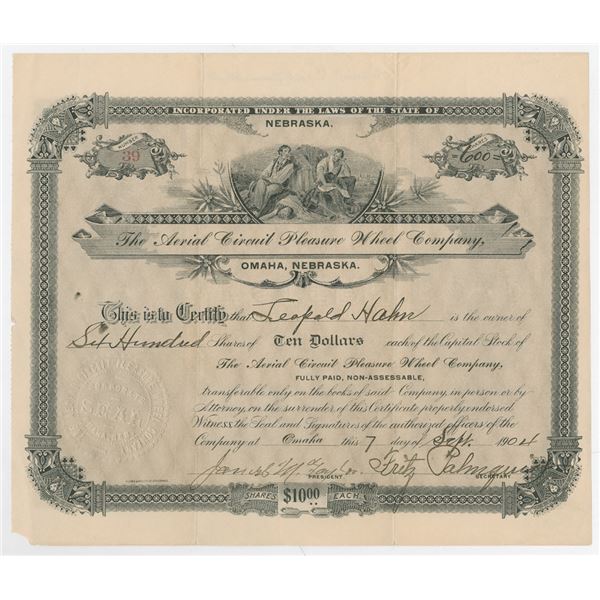 INCORPORATED UNDER THE LAWS OF THE STATE OF
NEBRASKA.
NUMBER
39
SHARES
-600-
The Aerial Circuit Pleasure Wheel Company,
OMAHA, NEBRASKA.
This is to Certify that Leopold Hahn is the owner of
Six Hundred Shares of Ten Dollars each of the Capital Stock of
The Aerial Circuit Pleasure Wheel Company,
FULLY PAID, NON-ASSESSABLE,
transferable only on the books of said Company, in person or by
Attorney, on the surrender of this Certificate properly endorsed
Witness the Seal and Signatures of the authorized officers of the
Company at Omaha this 7 day of Sept. 1904
Fritz
PRESIDENT.
SECRETARY
SHARES $10.00 EACH.
SEAL